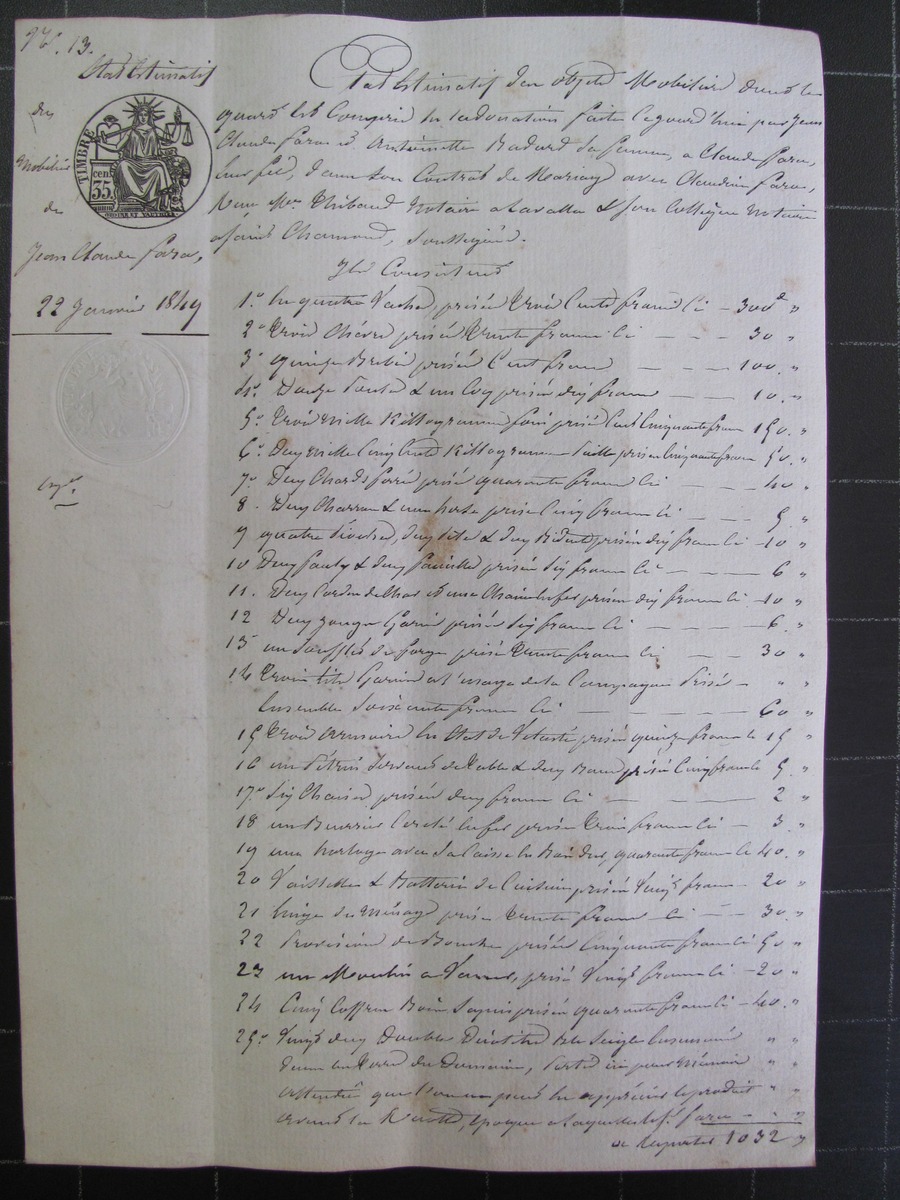 N°. 13.
Etat Estimatif
des
Mobilier
de
Jean Claude Fara,
22 Janvier 1849
TIMBRE
cen 35
Etat Estimatif des objets Mobiliers dans les
quels est Comprise la donation faite cejourd'hui par Jean
Claude Fara et Antoinette Badard sa femme, a Claude Fara,
leur fils, dans son Contrat de Mariage avec Claudine Fara,
reçu Mes Thibaud Notaire a Lavalla & son Collègue Notaire
a Saint Chamond, Soussignés.
Ils Consistent
1° en quatre Vaches, prisées trois Cents francs Ci — 300f "
2° trois Chèvres prisées trente francs Ci — — — 30 "
3° quinze Brebis prisées Cent francs — — — 100 . "
4° Douze Poules & un Coq prisés dix francs — — 10 . "
5° trois mille Killogrammes foin prisé Cent Cinquante francs 150 . "
6° Deux mille Cinq Cents Killogrammes Paille prisée Cinquante francs 50 . "
7° Deux Chars ferrés prisés quarante francs Ci — — — 40 . "
8 . Deux Charrues & une herse prisées Cinq francs Ci — — — 5 . "
9 quatre , deux & deux Bidents prisés dix francs Ci — 10 "
10 Deux faulx & deux faucilles prisées Six francs Ci — — — 6 "
11 . Deux Cordes de Char et une Chaine en fer prisées dix francs Ci — 10 "
12 Deux Jougs Garnis prisés Six francs Ci — — — 6 . "
13 un Soufflet de forge prisé trente francs Ci — — — 30 "
14 trois lits Garnis a l'usage de la Campagne Prisés — " "
Ensemble Soixante francs Ci — — — 60 "
15 trois Armoires en Etat de Vetusté prisées quinze francs Ci 15 "
16 un Pétrin Servant de table & deux Bancs prisés Cinq francs Ci 5 . "
17° Six Chaises prisées deux francs Ci — — — 2 "
18 un Cerclé en fer prisé trois francs Ci — 3 . "
19 une horloge avec Sa Caisse en Bois dur quarante francs Ci 40 . "
20 Vaisselles & Batterie de Cuisine prisées Vingt francs — 20 "
21 linge de Ménage prisé trente francs Ci — — 30 . "
22 Provisions de Bouche prisées Cinquante francs Ci 50 "
23 un Moulin a Vanner, prisé Vingt francs Ci — 20 "
24 Cinq Coffres Bois Sapin prisés quarante francs Ci — 40 . "
25° Vingt deux Doubles Décalitres Blé Seigle Ensemencés " "
dans les terres du Domaine, Porté ici pour Mémoire " "
attendu que l'on ne peut en apprécier le produit " "
avant la Récolte, époque a laquelle led. Sr. Fara — " "
a Reporter 1032 "